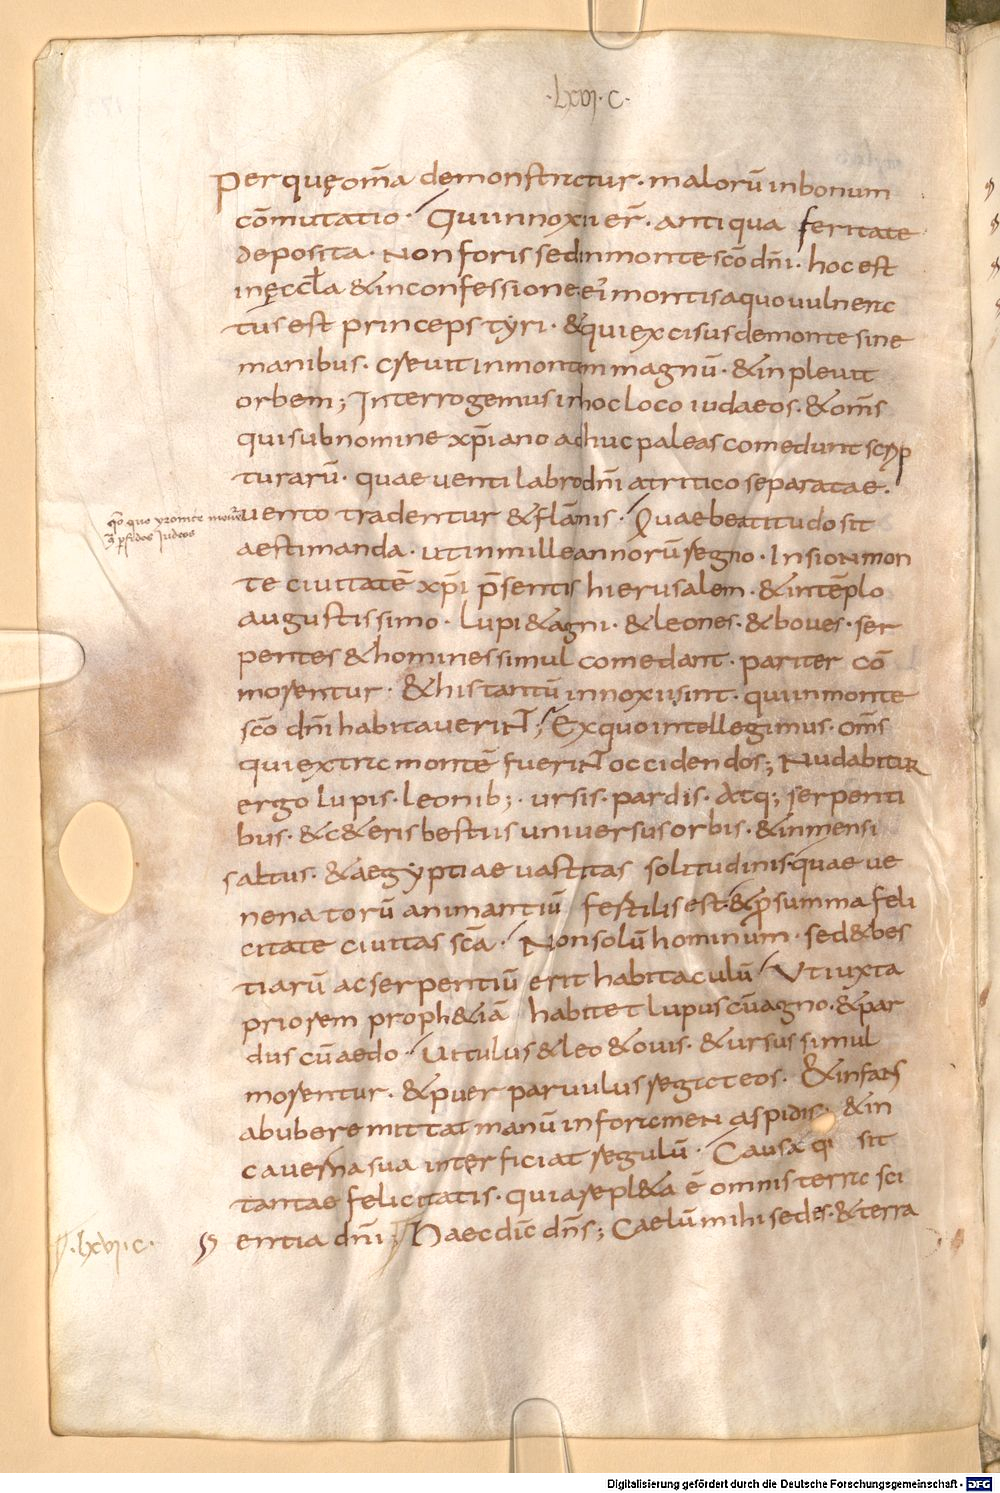 ·lxvi·c·
per quę om̄a demonstratur· malorū in bonum
cōmutatio· Qui innoxii er̄· antiqua feritate
deposita· Non foris sed in monte scō dn̄i· hoc est
in ęccl̄a & in confessione ei' montis a quo uulnera
tus est princeps tyri· & qui excisus de monte sine
manibus· creuit in montem magnū· & inpleuit
orbem; Interrogemus in hoc loco iudaeos· & om̄s
qui sub nomine xp̄iano adhuc paleas comedunt scrip
turarū· quae uentilabro dn̄i a tritico separatae·
uento tradentur & flāmis· Quae beatitudo sit
aestimanda· ut in mille annorū regno· In sion mon
te ciuitatē xp̄i p̄sentis hierusalem· & in tēplo
augustissimo· lupi & agni· & leones· & boues· ser
pentes & homines simul comedant· pariter cō
morentur· & his tantū innoxii sint· qui in monte
scō dn̄i habitauerint; Ex quo intellegimus· om̄s
qui extra montē fuerint occidendos; Nudabitur
ergo lupis· leonib;· ursis· pardis· Atq; serpenti
bus· & c&eris bestiis uniuersus orbis· & inmensi
saltus· & aegyptiae uastitas solitudinis· quae ue
nenatorū animantiū fertilis est· & p̄ summa feli
citate ciuitas scā· Non solū hominum· sed & bes
tiarū ac serpentiū erit habitaculū Ut iuxta
priorem proph&iā habitet lupus cū agno· & par
dus cū aedo· Uitulus & leo & ouis· & ursus simul
morentur· & puer paruulus regat eos· & infans
ab ubere mittat manū in foramen aspidis· & in
cauerna sua interficiat regulū· Causa q' sit
tantae felicitatis· quia repl&a ē omnis terra sci
entia dn̄i; Haec dic̄ dn̄s; Caelū mihi sedes· & terra
·lxvii·c·